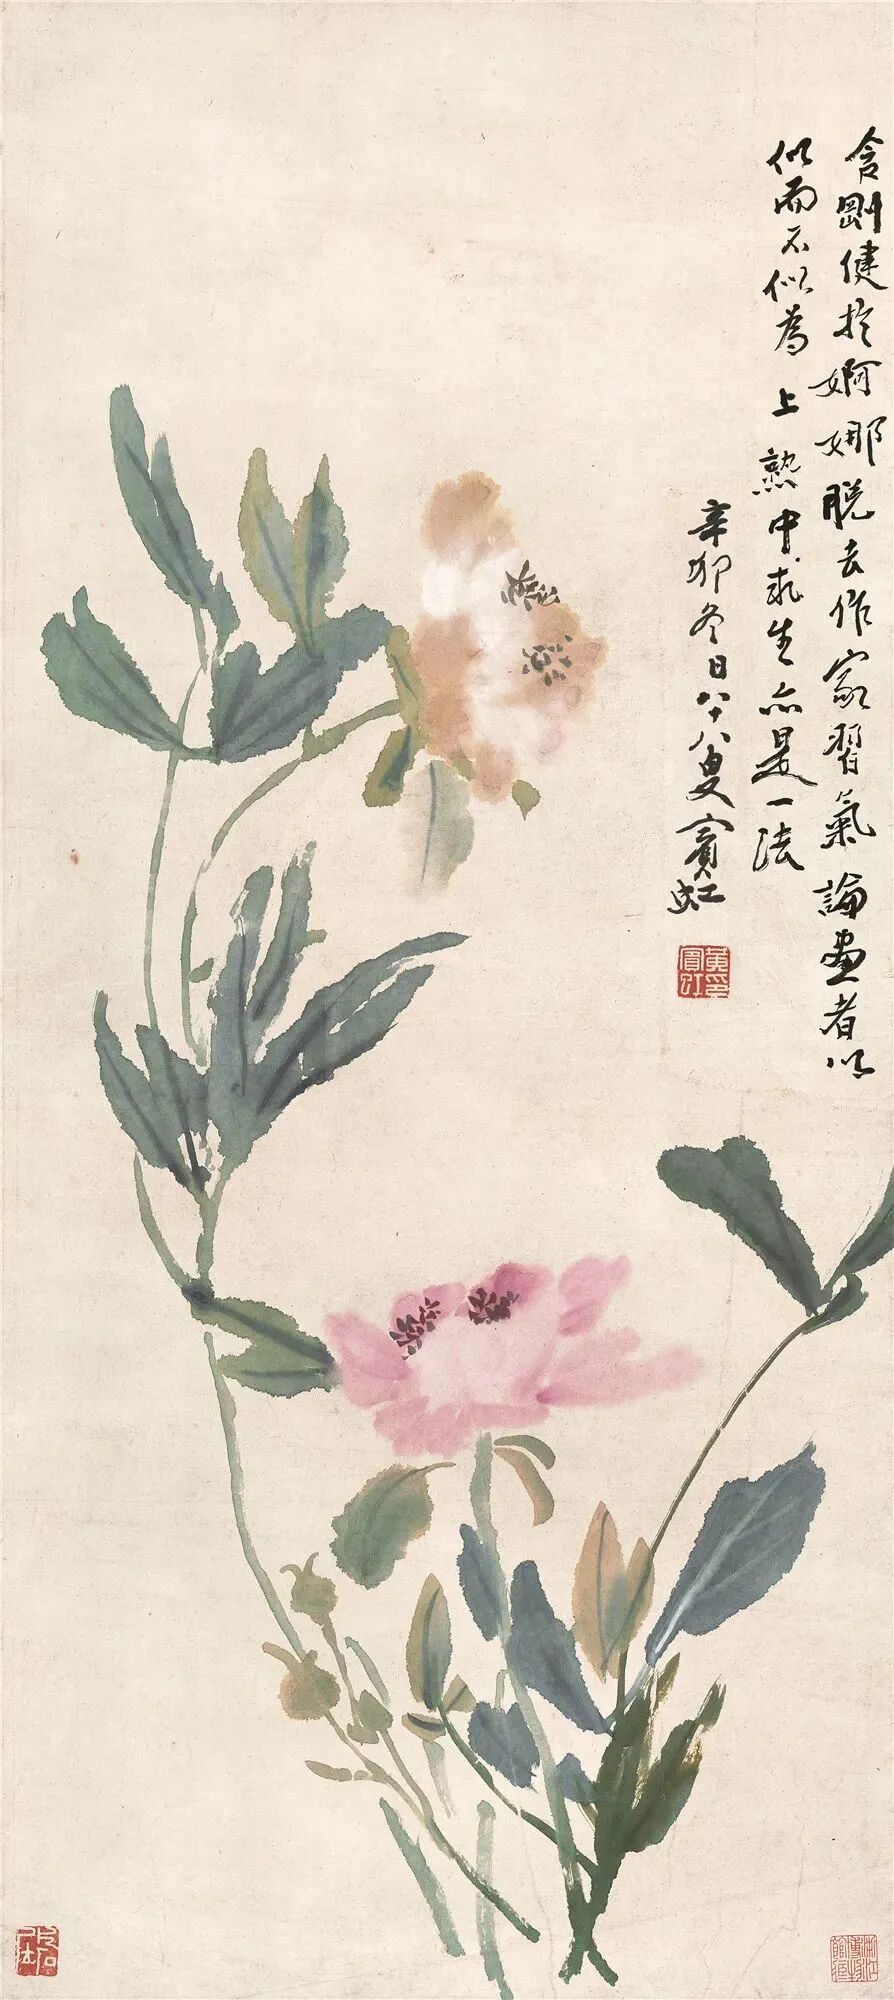 含剛健於婀娜脫去作家習氣論畫者以
似而不似為上熟中求生亦是一法
辛卯冬日八十八叟賓虹
黃印
賓虹
浙江
博物